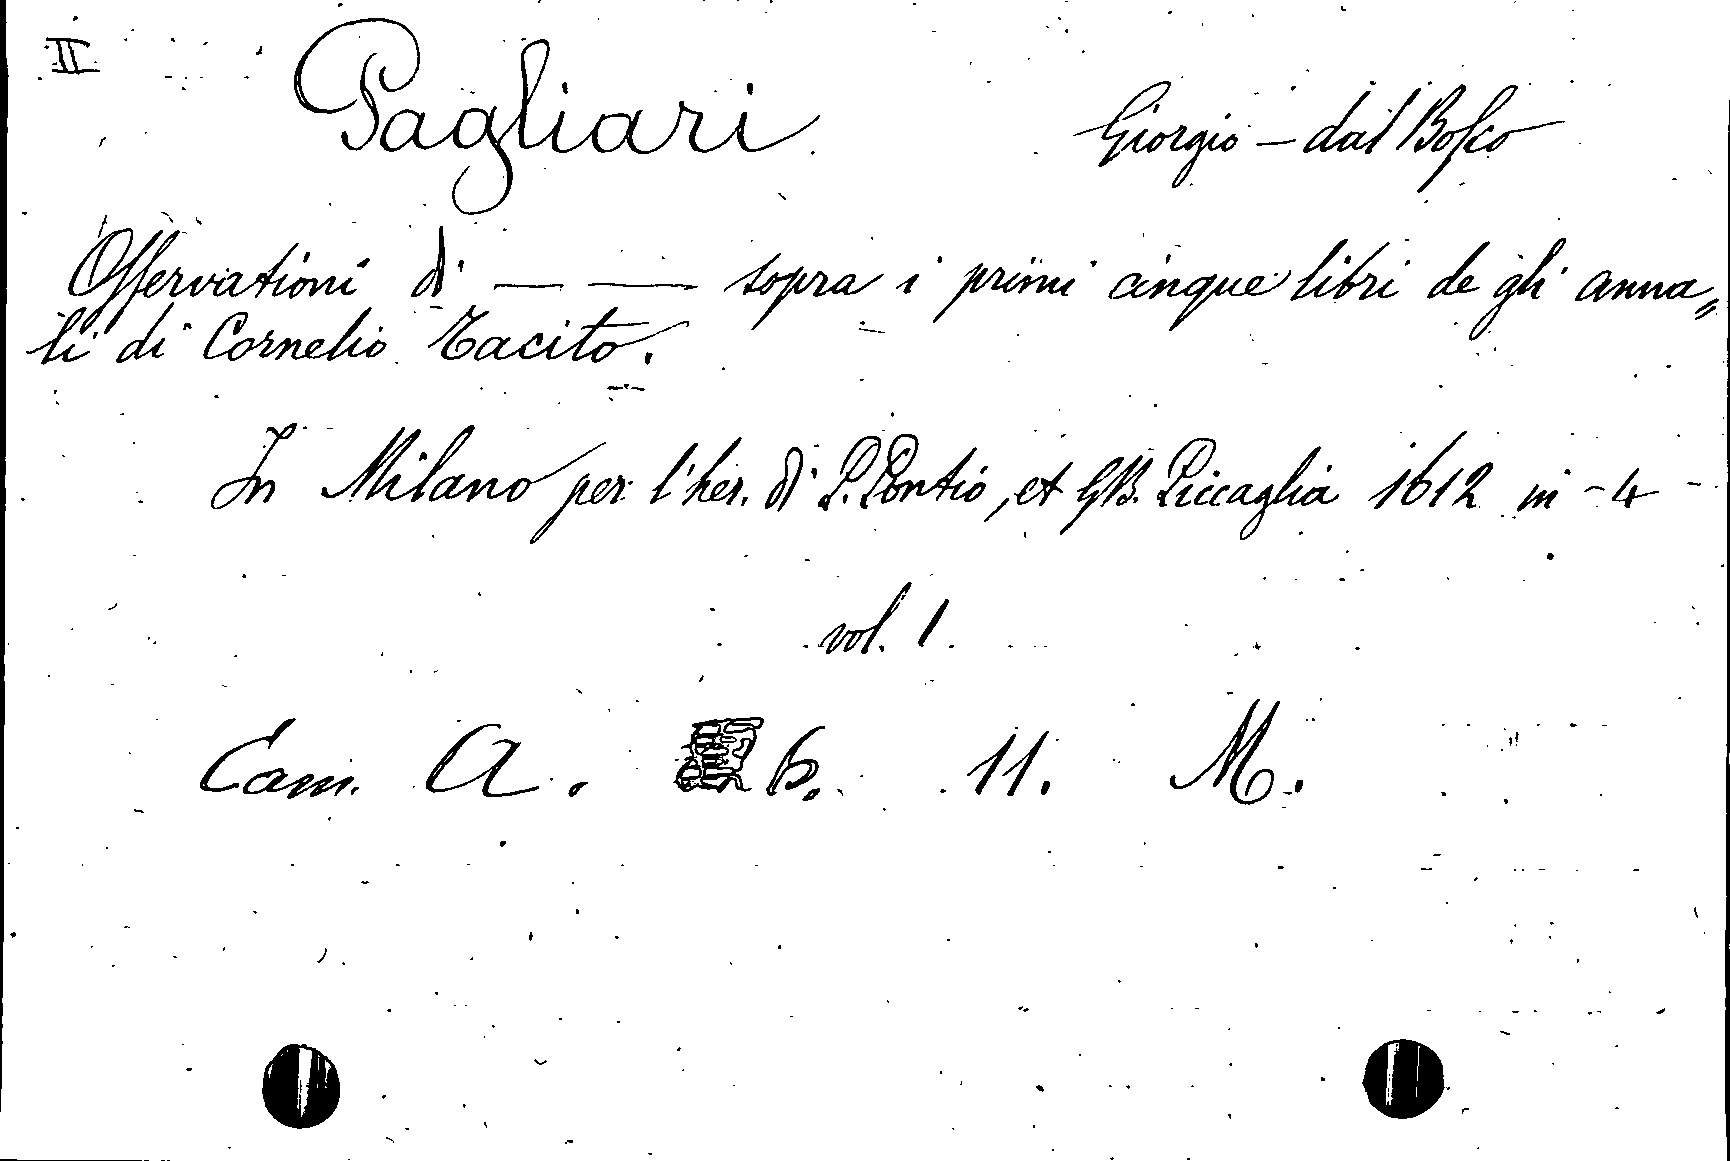 II
Pagliari Giorgio – dal Boſco
Oſſervationi di — — sopra i primi cinque libri de gli anna„
li di Cornelio Tacito.
In Milano per l'her. di P. Pontio, et G.B. Piccaglia 1612 in-4
vol. 1
Cam. A. b. 11. M.